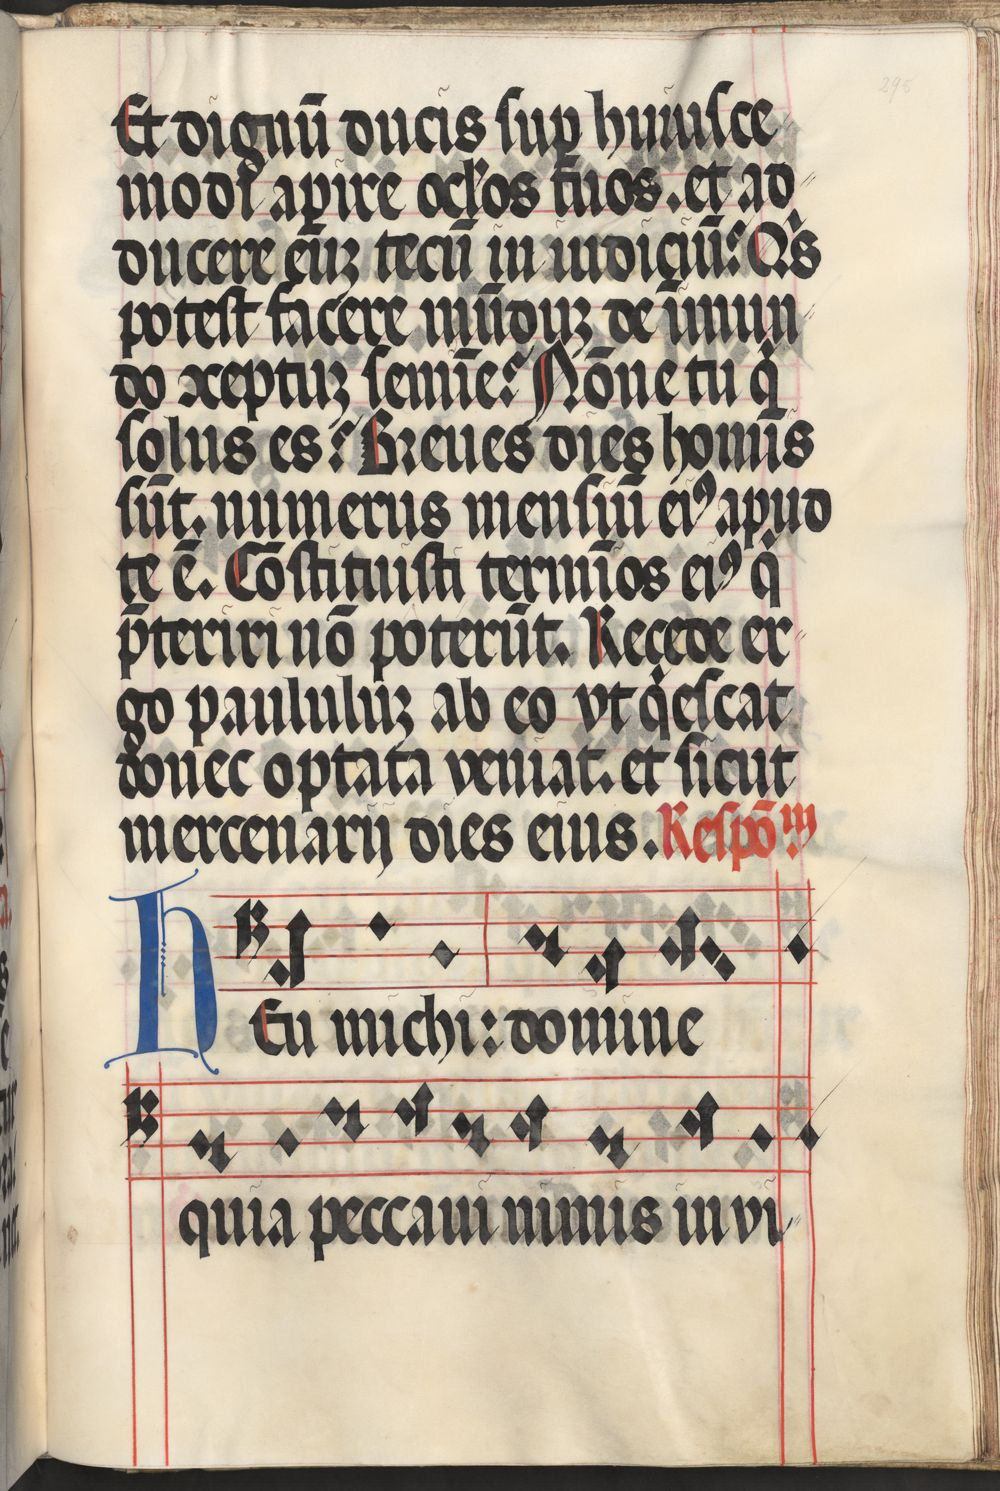 295
Et dignū ducis sup̱ huiusce
modi ap̱ire oclꝰos tuos. et ad
ducere eūꝫ tecū in iudiciū? Qͥs
potest facere mūduꝫ de īmun
do ↄceptuꝫ semīe? Nōne tu qͥ
solus es? Breues dies homīs
sūt. numerus mensiū eiꝰ apud
te ē. Cōstituisti termīos eiꝰ qͥ
p̄teriri nō poterūt. Recede er
go paululuꝫ ab eo vt qͥescat
donec optata veniat. et sicut
mercenarij dies eius. Respōm̄
HEu michi: domine
quia peccaui nimis in vi